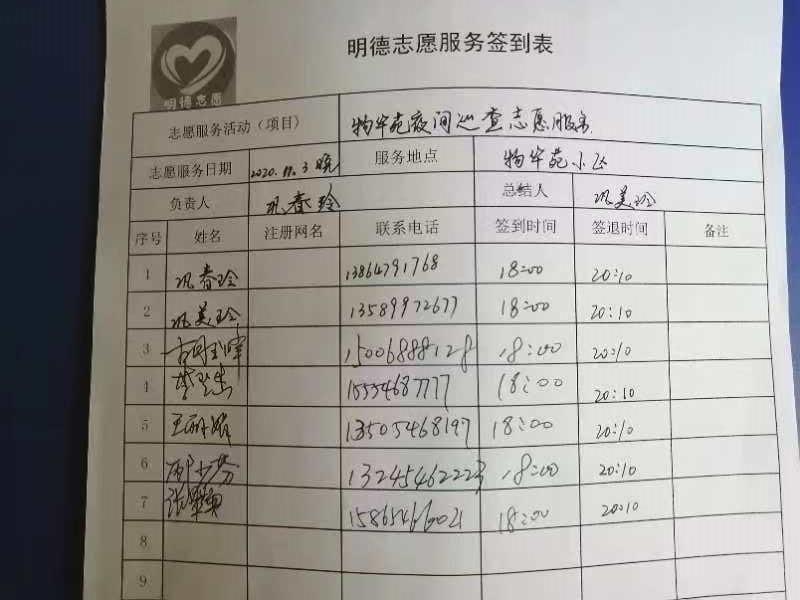 明德志愿服务签到表
明德志愿
志愿服务活动（项目） 物华苑夜间巡查志愿服务
志愿服务日期 2020.11.3晚 服务地点 物华苑小区
负责人 巩春玲 总结人 巩美玲
序号 姓名 注册网名 联系电话 签到时间 签退时间 备注
1 巩春玲 13864791768 18:00 20:10
2 巩美玲 13589972677 18:00 20:10
3 15006888128 18:00 20:10
4 15554687777 18:00 20:10
5 王丽娟 13505468197 18:00 20:10
6 13245462223 18:00 20:10
7 15865466021 18:00 20:10
8
9